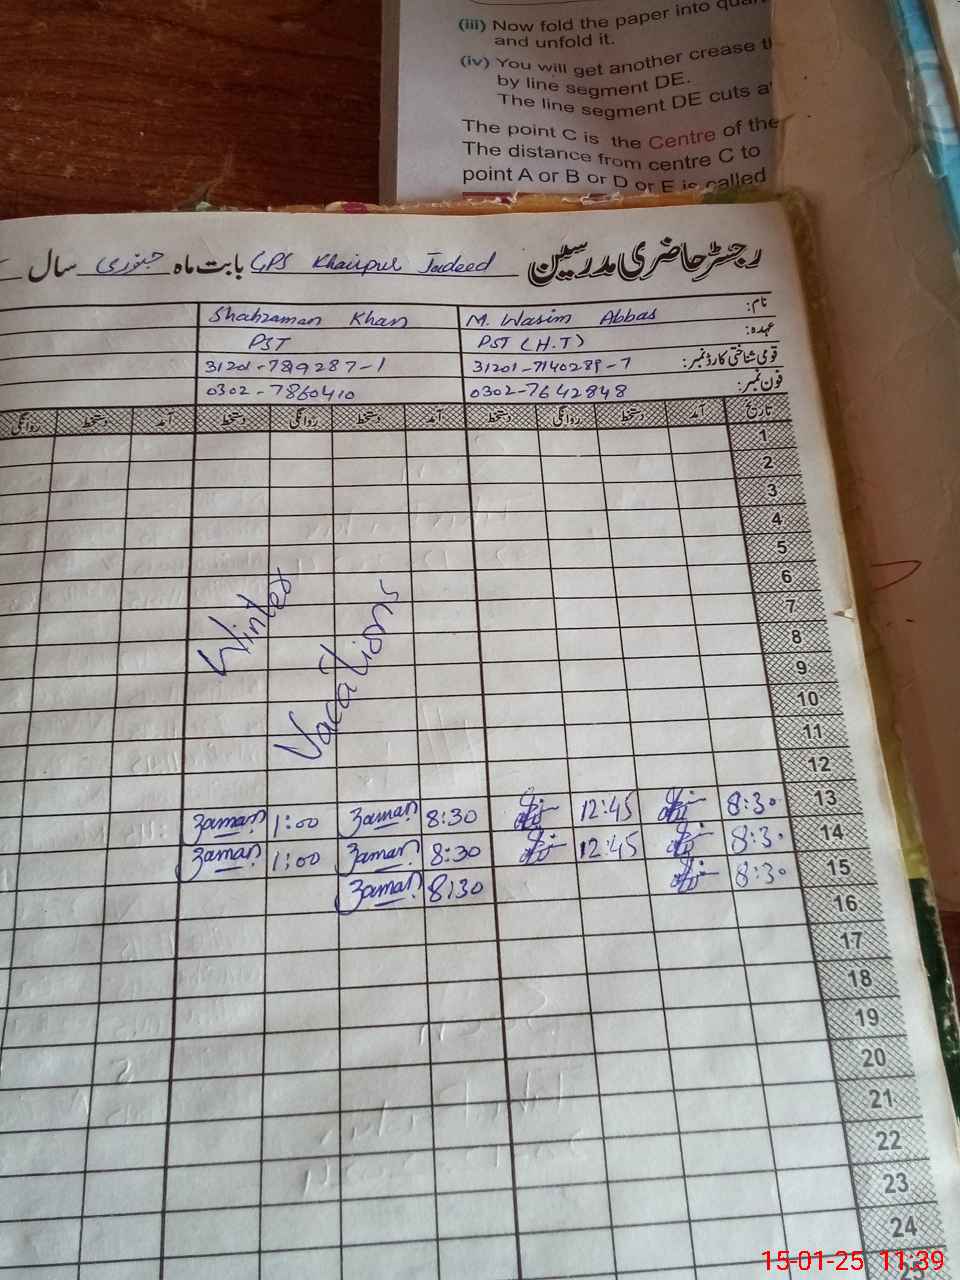 (iii) Now fold the paper into
and unfold it.
(iv) You will get another crease
by line segment DE.
The line segment DE cuts
The point C is the Centre of the
The distance from centre C to
point A or B or D or E is called
رجسٹر حاضری مدرسین GPS Khairpur Jadeed بابت ماہ جنوری سال
نام: M. Wasim Abbas Shahzaman Khan
عہدہ: PST (H.T) PST
قومی شناختی کارڈ نمبر: 31201-7140289-7 31201-789287-1
فون نمبر: 0302-7642848 0302-7860410
تاریخ آمد دستخط روانگی دستخط آمد دستخط روانگی دستخط آمد دستخط روانگی
1
2
3
4
5
6
7
8
9
10
11
12
Winter
Vacations
13 8:30 12:45 8:30 Zaman 1:00 Zaman
14 8:30 12:45 8:30 Zaman 1:00 Zaman
15 8:30 8:30 Zaman
16
17
18
19
20
21
22
23
24
25
15-01-25 11:39